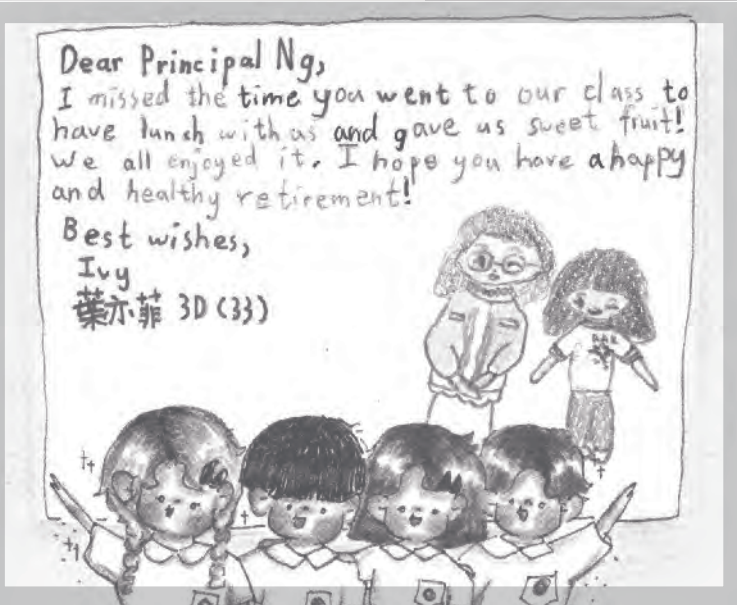 Dear Principal Ng,
I missed the time you went to our class to
have lunch with us and gave us sweet fruit!
We all enjoyed it. I hope you have a happy
and healthy retirement!
Best wishes,
Ivy
葉亦菲 3D (33)